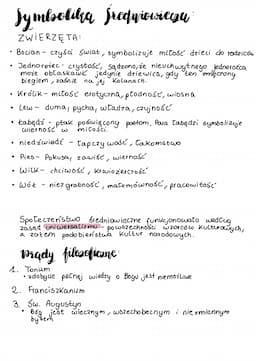 Symbolika średniowiecza
ZWIERZĘTA:
• Bocian - czyści świat, symbolizuje miłość dzieci do rodziców
• Jednorożec - czystość, sądzono, że nieuchwytnego jednorożca
może obłaskawić jedynie dziewica, gdy ten zmęczony
biegiem, zaśnie na jej kolanach.
• Królik - miłość erotyczna, płodność, wiosna
• Lew - duma, pycha, władza, czujność
• Łabędź - ptak poświęcony poetom. Para łabędzi symbolizuje
wierność w miłości.
• niedźwiedź - łapczywość, łakomstwo
• Pies - Pokusa, zawiść, wierność
• Wilk - chciwość, krwiożerczość
• Wół - niezgrabność, małomówność, pracowitość
Społeczeństwo średniowieczne funkcjonowało według
zasad uniwersalizmu - powszechności wzorców kulturowych,
a zatem podobieństwa kultur narodowych.
Prądy filozoficzne
1. Tomizm
• zdobycie pełnej wiedzy o Bogu jest niemożliwe
2. Franciszkanizm
3. Św. Augustyn
• Bóg jest wiecznym, wszechobecnym i niezmiennym
bytem